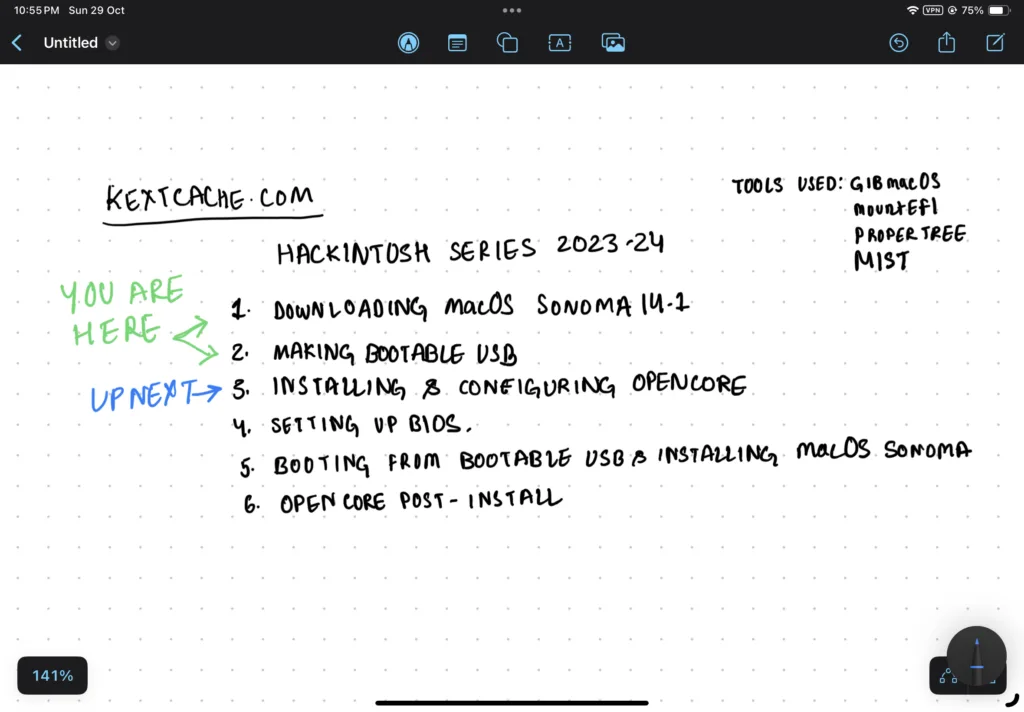 10:55 PM Sun 29 Oct
VPN 75%
Untitled
A
KEXTCACHE.COM
TOOLS USED: GIBmacOS
mountEFI
PROPERTREE
MIST
HACKINTOSH SERIES 2023-24
YOU ARE
HERE
1. DOWNLOADING macOS SONOMA 14.1
2. MAKING BOOTABLE USB
UP NEXT → 3. INSTALLING & CONFIGURING OPENCORE
4. SETTING UP BIOS.
5. BOOTING FROM BOOTABLE USB & INSTALLING macOS SONOMA
6. OPENCORE POST-INSTALL
141%